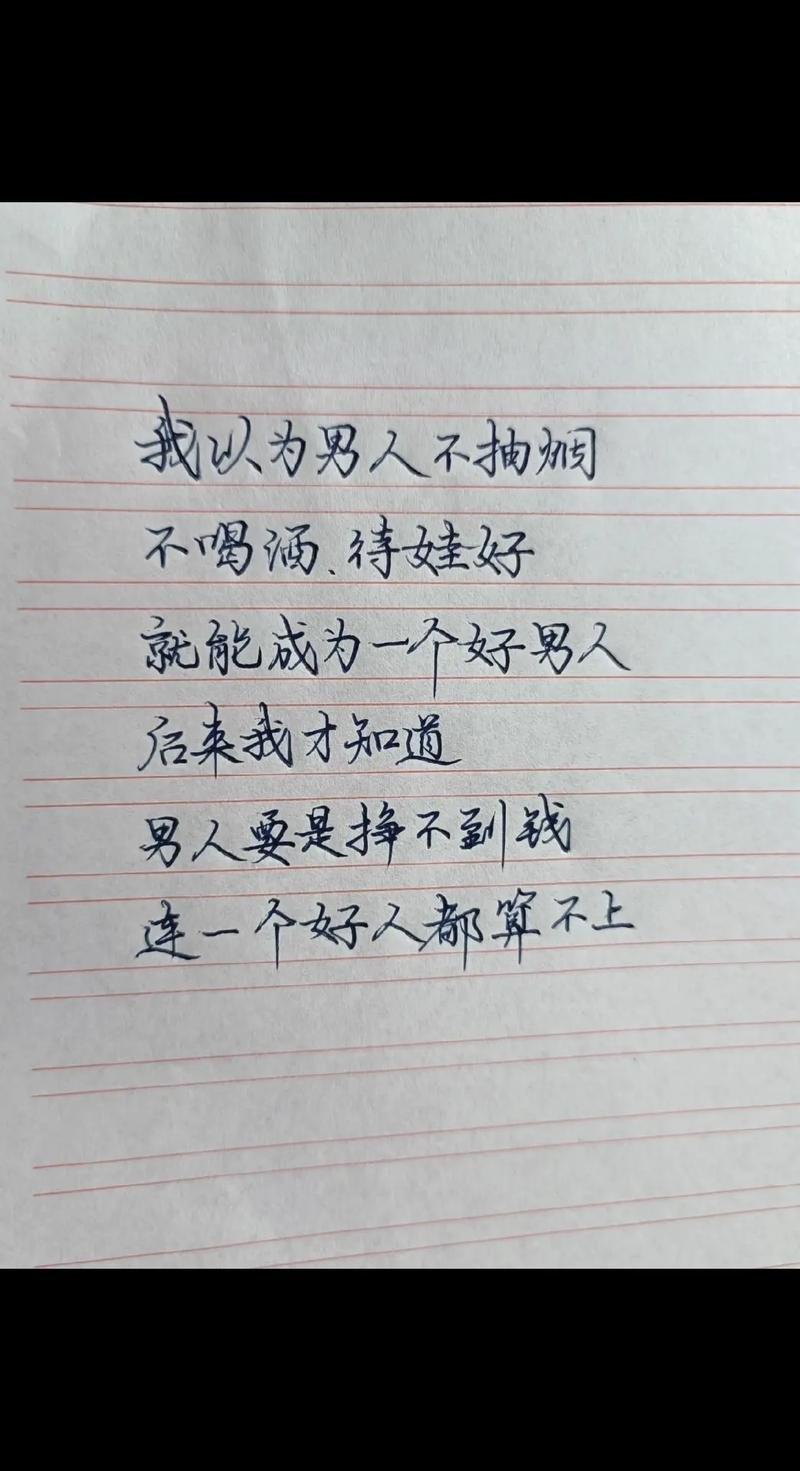 我以为男人不抽烟
不喝酒、待娃好
就能成为一个好男人
后来我才知道
男人要是挣不到钱
连一个好人都算不上